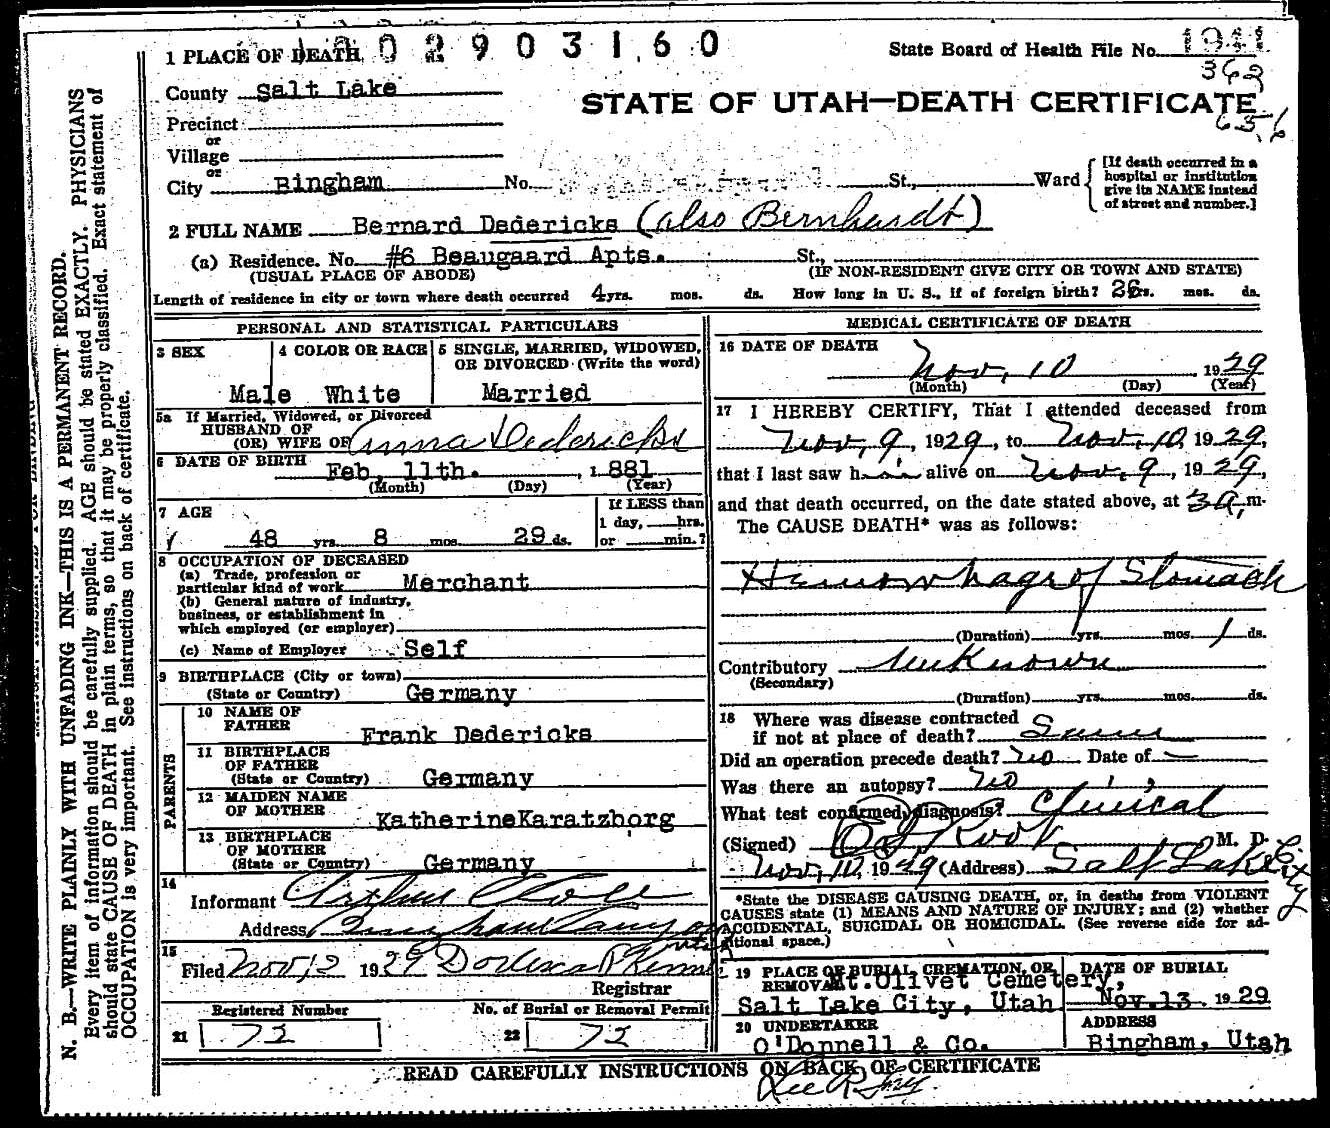 1 PLACE OF DEATH 0 2 9 0 3 1 6 0
State Board of Health File No.
362
County Salt Lake
STATE OF UTAH—DEATH CERTIFICATE
Precinct
or
Village
or
City Bingham No. St., Ward
[If death occurred in a
hospital or institution
give its NAME instead
of street and number.]
2 FULL NAME Bernard Dedericks (also Bernhardt)
(a) Residence. No. #6 Beaugaard Apts. St.,
(USUAL PLACE OF ABODE) (IF NON-RESIDENT GIVE CITY OR TOWN AND STATE)
Length of residence in city or town where death occurred 4 yrs. mos. ds. How long in U. S., if of foreign birth? 26 yrs. mos. ds.
PERSONAL AND STATISTICAL PARTICULARS
3 SEX 4 COLOR OR RACE 5 SINGLE, MARRIED, WIDOWED,
OR DIVORCED (Write the word)
Male White Married
5a If Married, Widowed, or Divorced
HUSBAND OF
(OR) WIFE OF Anna Dedericks
6 DATE OF BIRTH Feb, 11th. , 1881
(Month) (Day) (Year)
7 AGE If LESS than
1 day, hrs.
48 yrs. 8 mos. 29 ds. or min.?
8 OCCUPATION OF DECEASED
(a) Trade, profession or
particular kind of work Merchant
(b) General nature of industry,
business, or establishment in
which employed (or employer)
(c) Name of Employer Self
9 BIRTHPLACE (City or town)
(State or Country) Germany
PARENTS
10 NAME OF
FATHER Frank Dedericks
11 BIRTHPLACE
OF FATHER
(State or Country) Germany
12 MAIDEN NAME
OF MOTHER KatherineKaratzborg
13 BIRTHPLACE
OF MOTHER
(State or Country) Germany
14
Informant Arthur
Address Bingham Canyon
Utah
15
Filed Nov 12 1929
Registrar
Registered Number No. of Burial or Removal Permit
21 72 22 72
MEDICAL CERTIFICATE OF DEATH
16 DATE OF DEATH
Nov, 10 1929
(Month) (Day) (Year)
17 I HEREBY CERTIFY, That I attended deceased from
Nov, 9, 1929, to Nov, 10, 1929,
that I last saw him alive on Nov, 9, 1929,
and that death occurred, on the date stated above, at 3 a, m.
The CAUSE DEATH* was as follows:
Hemorrhage of Stomach
(Duration) yrs. mos. 1 ds.
Contributory unknown
(Secondary)
(Duration) yrs. mos. ds.
18 Where was disease contracted
if not at place of death?
Did an operation precede death? no Date of —
Was there an autopsy? no
What test confirmed diagnosis? Clinical
(Signed) M. D.
Nov, 10, 1929 (Address) Salt Lake City
*State the DISEASE CAUSING DEATH, or, in deaths from VIOLENT
CAUSES state (1) MEANS AND NATURE OF INJURY; and (2) whether
ACCIDENTAL, SUICIDAL OR HOMICIDAL. (See reverse side for ad-
ditional space.)
19 PLACE OF BURIAL, CREMATION, OR DATE OF BURIAL
REMOVAL Mt.Olivet Cemetery,
Salt Lake City, Utah Nov.13, 1929
20 UNDERTAKER ADDRESS
O'Donnell & Co. Bingham, Utah
READ CAREFULLY INSTRUCTIONS ON BACK OF CERTIFICATE
N. B.—WRITE PLAINLY WITH UNFADING INK—THIS IS A PERMANENT RECORD.
Every item of information should be carefully supplied. AGE should be stated EXACTLY. PHYSICIANS
should state CAUSE OF DEATH in plain terms, so that it may be properly classified. Exact statement of
OCCUPATION is very important. See instructions on back of certificate.